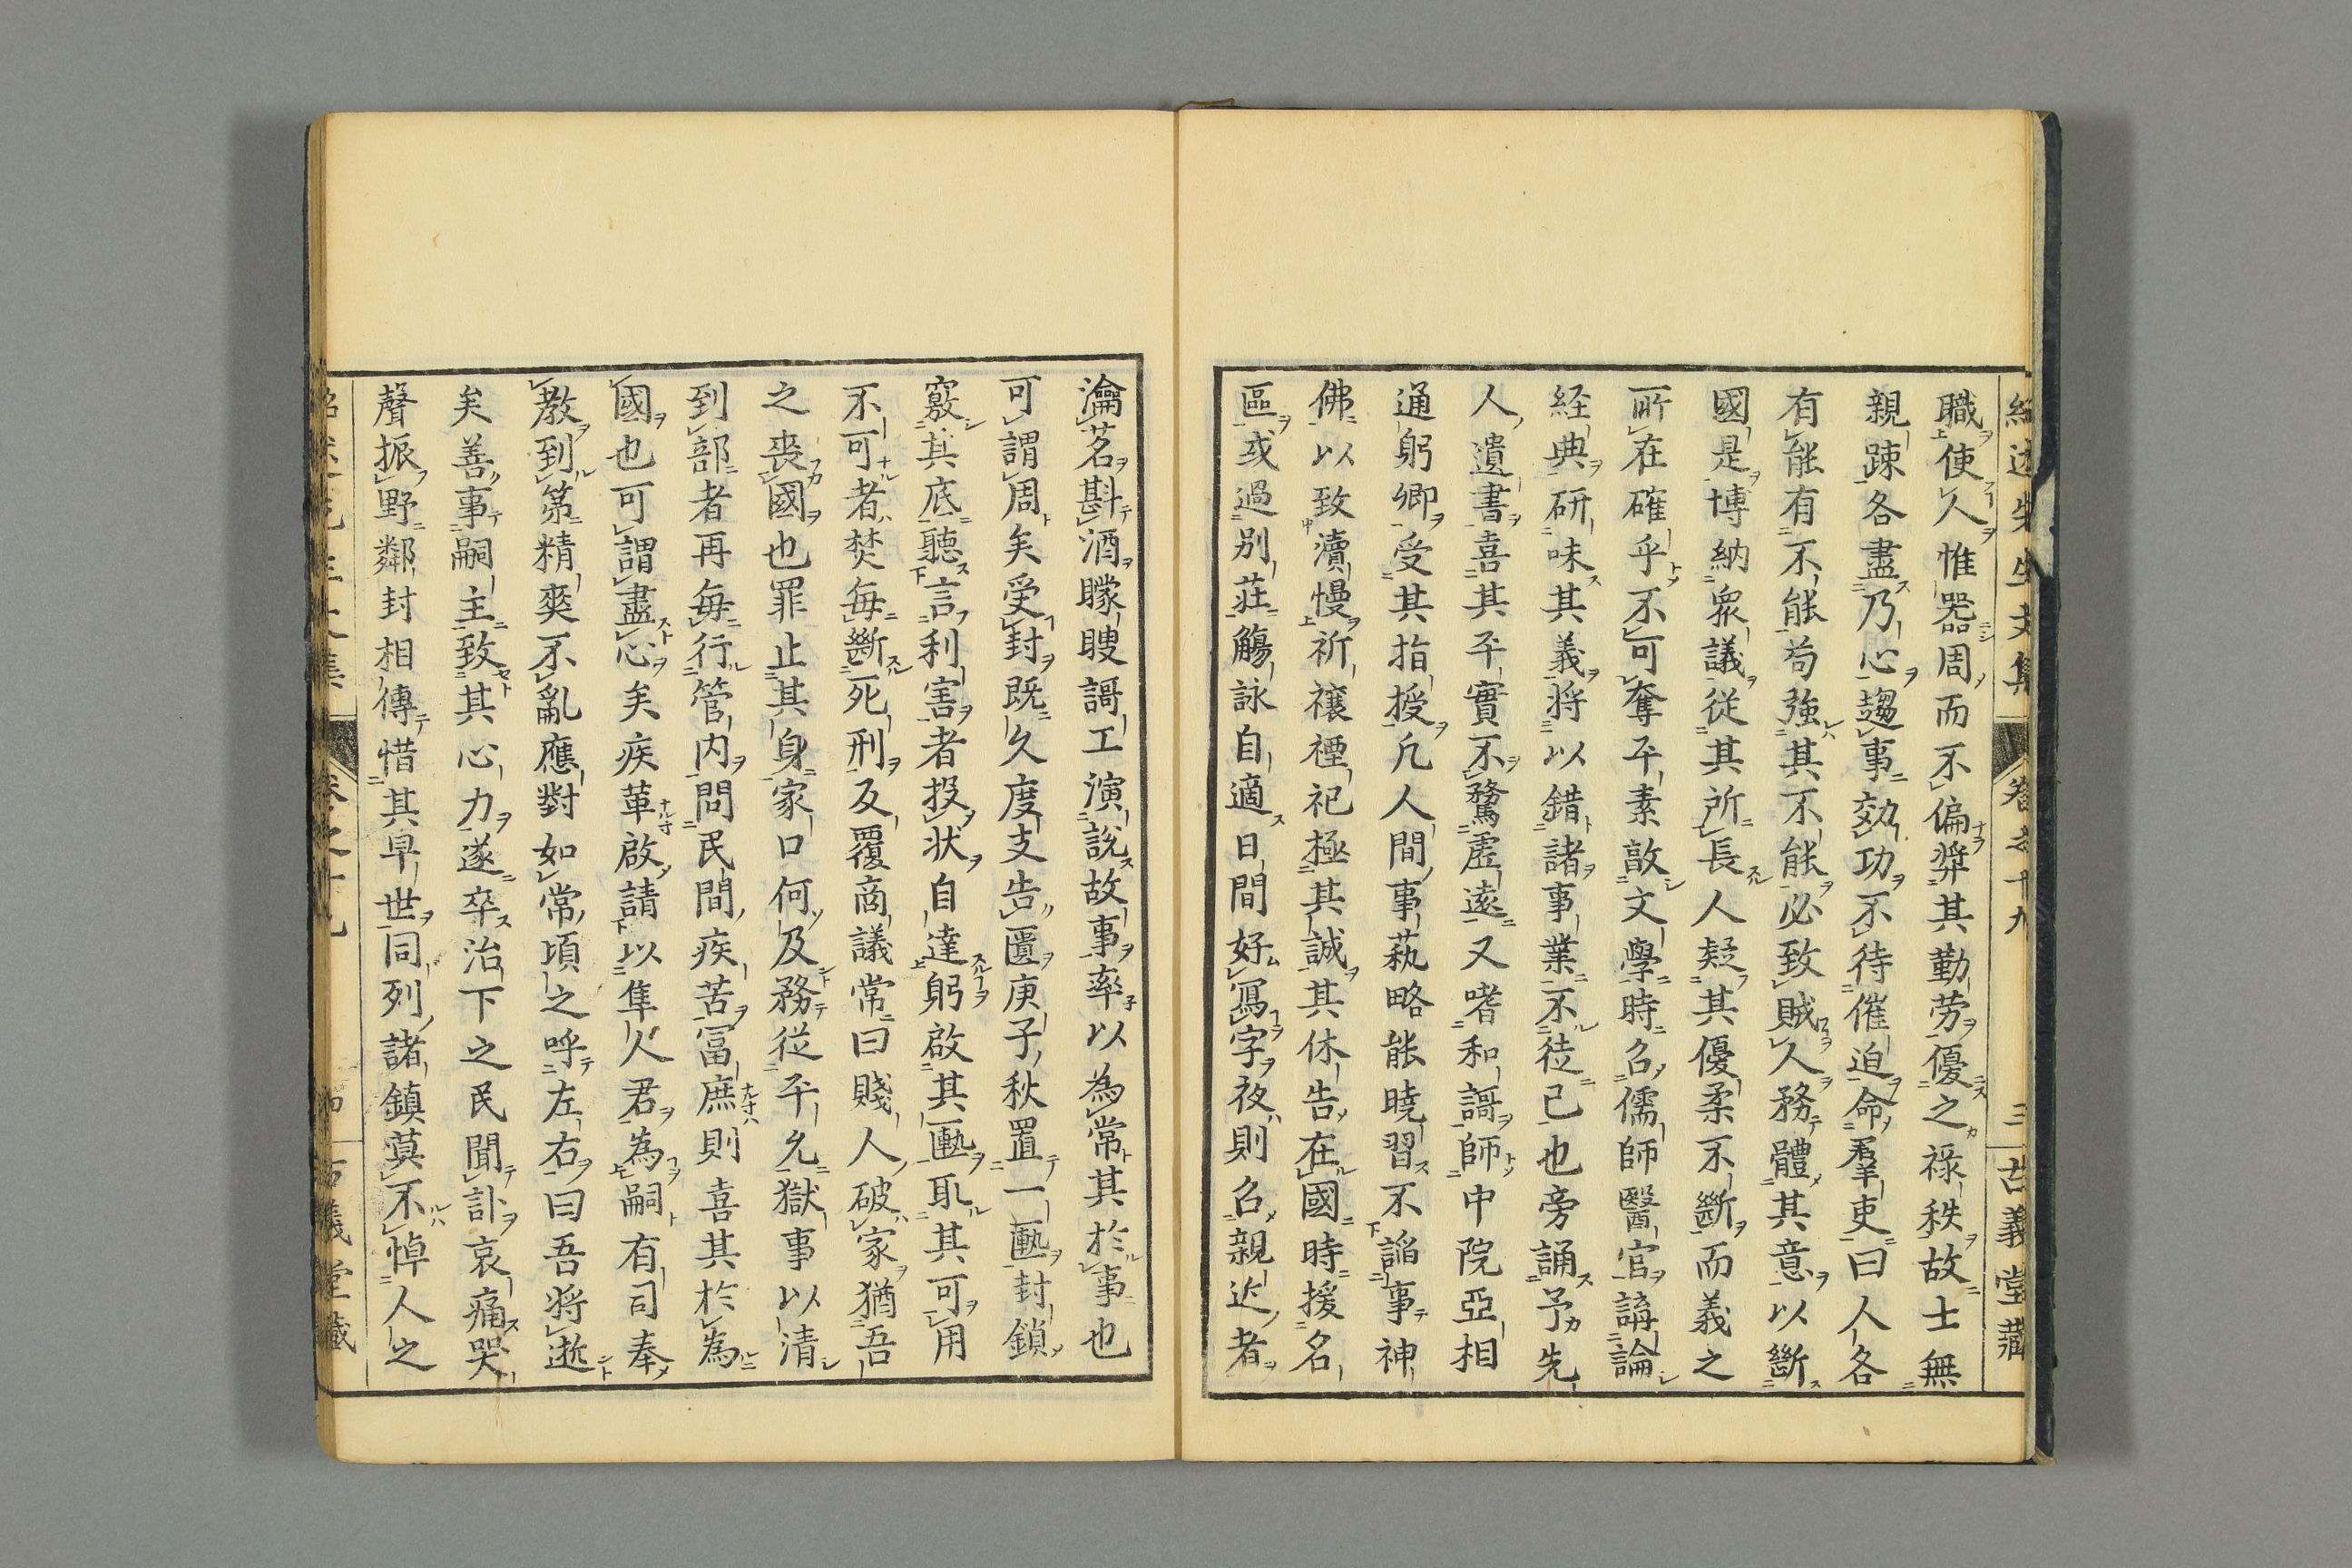 紹述先生文集 卷之十九 三 古義堂藏
職使人惟器周而不偏弊其勤勞優之祿秩故士無
親踈各盡乃心趨事効功不待催迫命羣吏曰人各
有能有不能苟強其不能必致賊人務體其意以斷
國是博納衆議從其所長人疑其優柔不斷而義之
所在確乎不可奪平素敦文學時召儒師醫官講論
経典研味其義将以錯諸事業不徒已也旁誦予先
人遺書喜其平實不騖虛遠又嗜和謌師中院亞相
通躬卿受其指授凢人間事蓺略能曉習不謟事神
佛以致瀆慢祈禳禋祀極其誠其休告在國時援名
區或過别莊觴詠自適日間好冩字夜則召親近者
瀹茗斟酒矇瞍謌工演說故事率以為常其於事也
可謂周矣受封既久度支告匱庚子秋置一匭封鎖
竅其底聽言利害者投状自達躬啟其匭取其可用
不可者焚每斷死刑反覆商議常曰賤人破家猶吾
之喪國也罪止其身家口何及務從平允獄事以清
到部者再每行管内問民間疾苦冨庶則喜其於為
國也可謂盡心矣疾革啟請以隼人君為嗣有司奉
教到第精爽不亂應對如常頃之呼左右曰吾将逝
矣善事嗣主致其心力遂卒治下之民聞訃哀痛哭
聲振野鄰封相傳惜其早世同列諸鎮莫不悼人之
古義堂藏